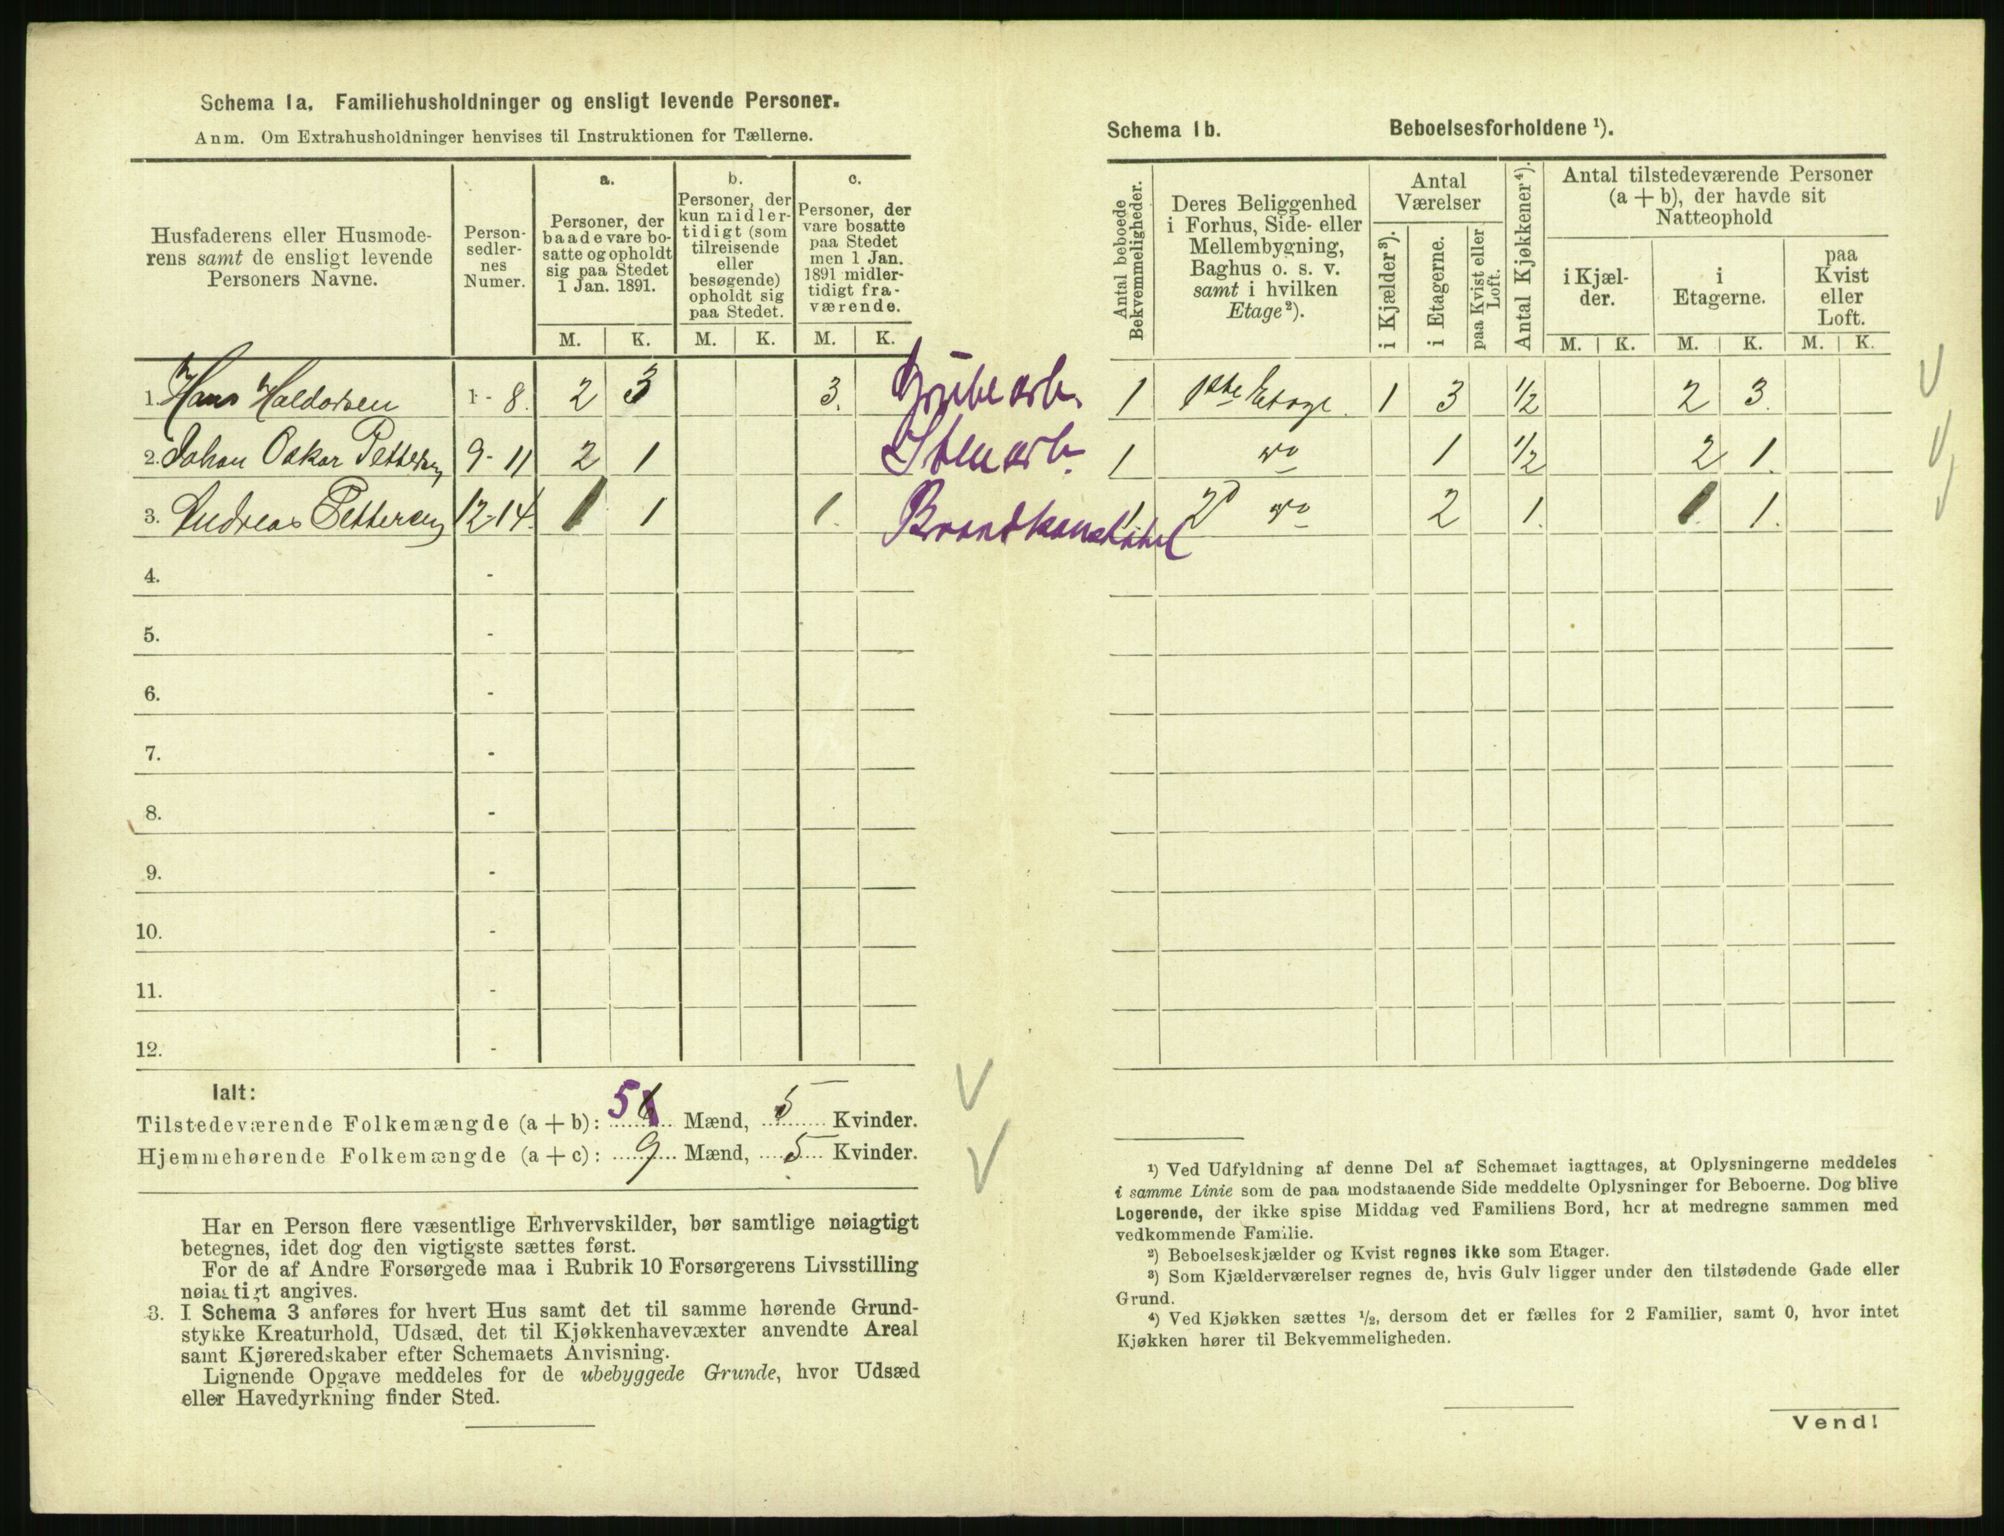 Schema 1a. Familiehusholdninger og ensligt levende Personer.
Anm. Om Extrahusholdninger henvises til Instruktionen for Tællerne.
Husfaderens eller Husmode-
rens samt de ensligt levende
Personers Navne.
Person-
sedler-
nes
Numer.
a.
Personer, der
baade vare bo-
satte og opholdt
sig paa Stedet
1 Jan. 1891.
b.
Personer, der
kun midler-
tidigt (som
tilreisende
eller
besøgende)
opholdt sig
paa Stedet.
c.
Personer, der
vare bosatte
paa Stedet
men 1 Jan.
1891 midler-
tidigt fra-
værende.
M. K. M. K. M. K.
1. Hans Haldorsen 1 - 8. 2 3 3. Grubearb.
2. Johan Oskar Pettersen 9 - 11 2 1 Stenarb.
3. Andreas Pettersen 12 - 14. 1 1 1. Brandkonstabel
4. -
5. -
6. -
7. -
8. -
9. -
10. -
11. -
12. -
Ialt:
Tilstedeværende Folkemængde (a + b): 5 Mænd, 5 Kvinder.
Hjemmehørende Folkemængde (a + c): 9 Mænd, 5 Kvinder.
Har en Person flere væsentlige Erhvervskilder, bør samtlige nøiagtigt
betegnes, idet dog den vigtigste sættes først.
For de af Andre Forsørgede maa i Rubrik 10 Forsørgerens Livsstilling
nøiagtigt angives.
3. I Schema 3 anføres for hvert Hus samt det til samme hørende Grund-
stykke Kreaturhold, Udsæd, det til Kjøkkenhavevæxter anvendte Areal
samt Kjøreredskaber efter Schemaets Anvisning.
Lignende Opgave meddeles for de ubebyggede Grunde, hvor Udsæd
eller Havedyrkning finder Sted.
Schema 1b. Beboelsesforholdene ¹).
Antal beboede
Bekvemmeligheder.
Deres Beliggenhed
i Forhus, Side- eller
Mellembygning,
Baghus o. s. v.
samt i hvilken
Etage²).
Antal
Værelser
i Kjælder³).
i Etagerne.
paa Kvist eller
Loft.
Antal Kjøkkener⁴).
Antal tilstedeværende Personer
(a + b), der havde sit
Natteophold
i Kjæl-
der.
i
Etagerne.
paa
Kvist
eller
Loft.
M. K. M. K. M. K.
1 1ste Etage. 1 3 1/2 2 3.
1 do 1 1/2 2 1.
1. 2d do 2 1. 1. 1.
¹) Ved Udfyldning af denne Del af Schemaet iagttages, at Oplysningerne meddeles
i samme Linie som de paa modstaaende Side meddelte Oplysninger for Beboerne. Dog blive
Logerende, der ikke spise Middag ved Familiens Bord, her at medregne sammen med
vedkommende Familie.
²) Beboelseskjælder og Kvist regnes ikke som Etager.
³) Som Kjælderværelser regnes de, hvis Gulv ligger under den tilstødende Gade eller
Grund.
⁴) Ved Kjøkken sættes ½, dersom det er fælles for 2 Familier, samt 0, hvor intet
Kjøkken hører til Bekvemmeligheden.
Vend!